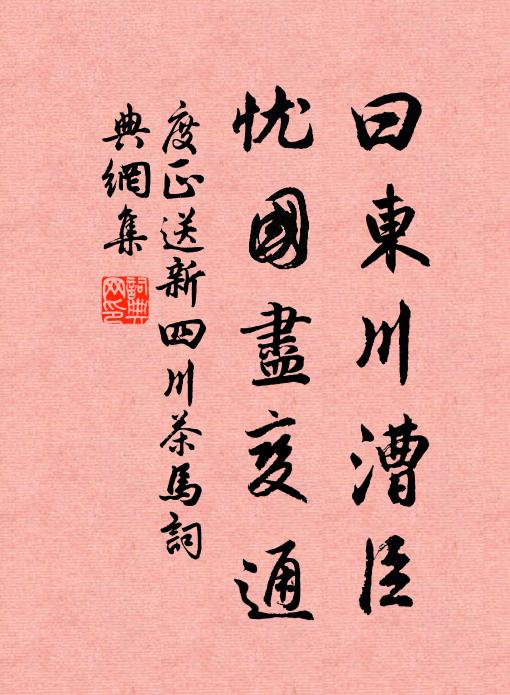 曰東川漕臣
忧國盡变通
度正送新四川茶馬詞
典網集
詞典网印